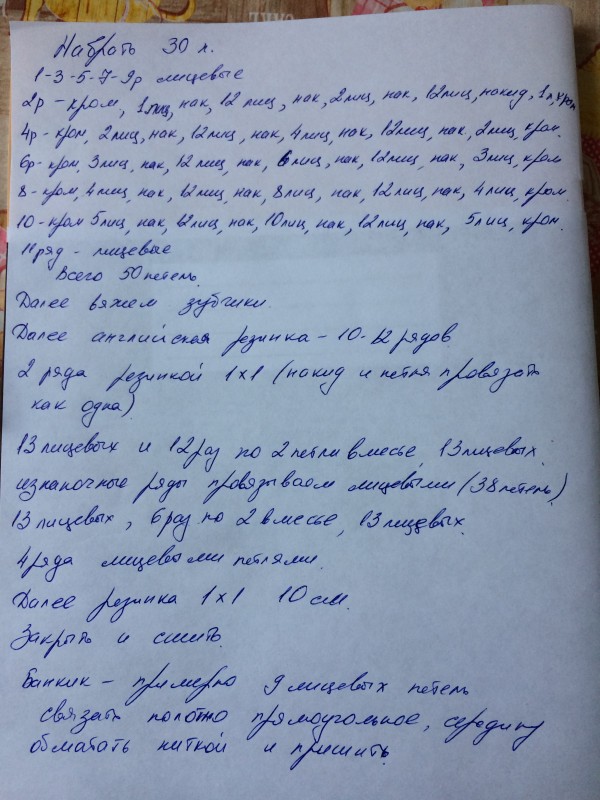 Набрать 30 п.
1-3-5-7-9р лицевые
2р - кром, 1лиц, нак, 12 лиц, нак, 2лиц, нак, 12лиц, накид, 1л, кром
4р - кром, 2лиц, нак, 12лиц, нак, 4лиц, нак, 12лиц, нак, 2лиц, кром.
6р - кром, 3лиц, нак, 12лиц, нак, 6лиц, нак, 12лиц, нак, 3лиц, кром
8 - кром, 4лиц, нак, 12лиц, нак, 8лиц, нак, 12лиц, нак, 4лиц, кром.
10 - кром 5лиц, нак, 12лиц, нак, 10лиц, нак, 12лиц, нак, 5лиц, кром.
11 ряд - лицевые
Всего 50 петель.
Далее вяжем зубчики.
Далее английская резинка - 10-12 рядов
2 ряда резинкой 1х1 (накид и петля провязать
как одна)
13 лицевых и 12 раз по 2 петли вместе, 13 лицевых.
изнаночные ряды провязываем лицевыми (38 петель)
13 лицевых, 6 раз по 2 вместе, 13 лицевых.
4 ряда лицевыми петлями.
Далее резинка 1х1 10 см.
Закрыть и сшить.
Бантик - примерно 9 лицевых петель
связать полотно прямоугольное, середину
обмотать ниткой и пришить.